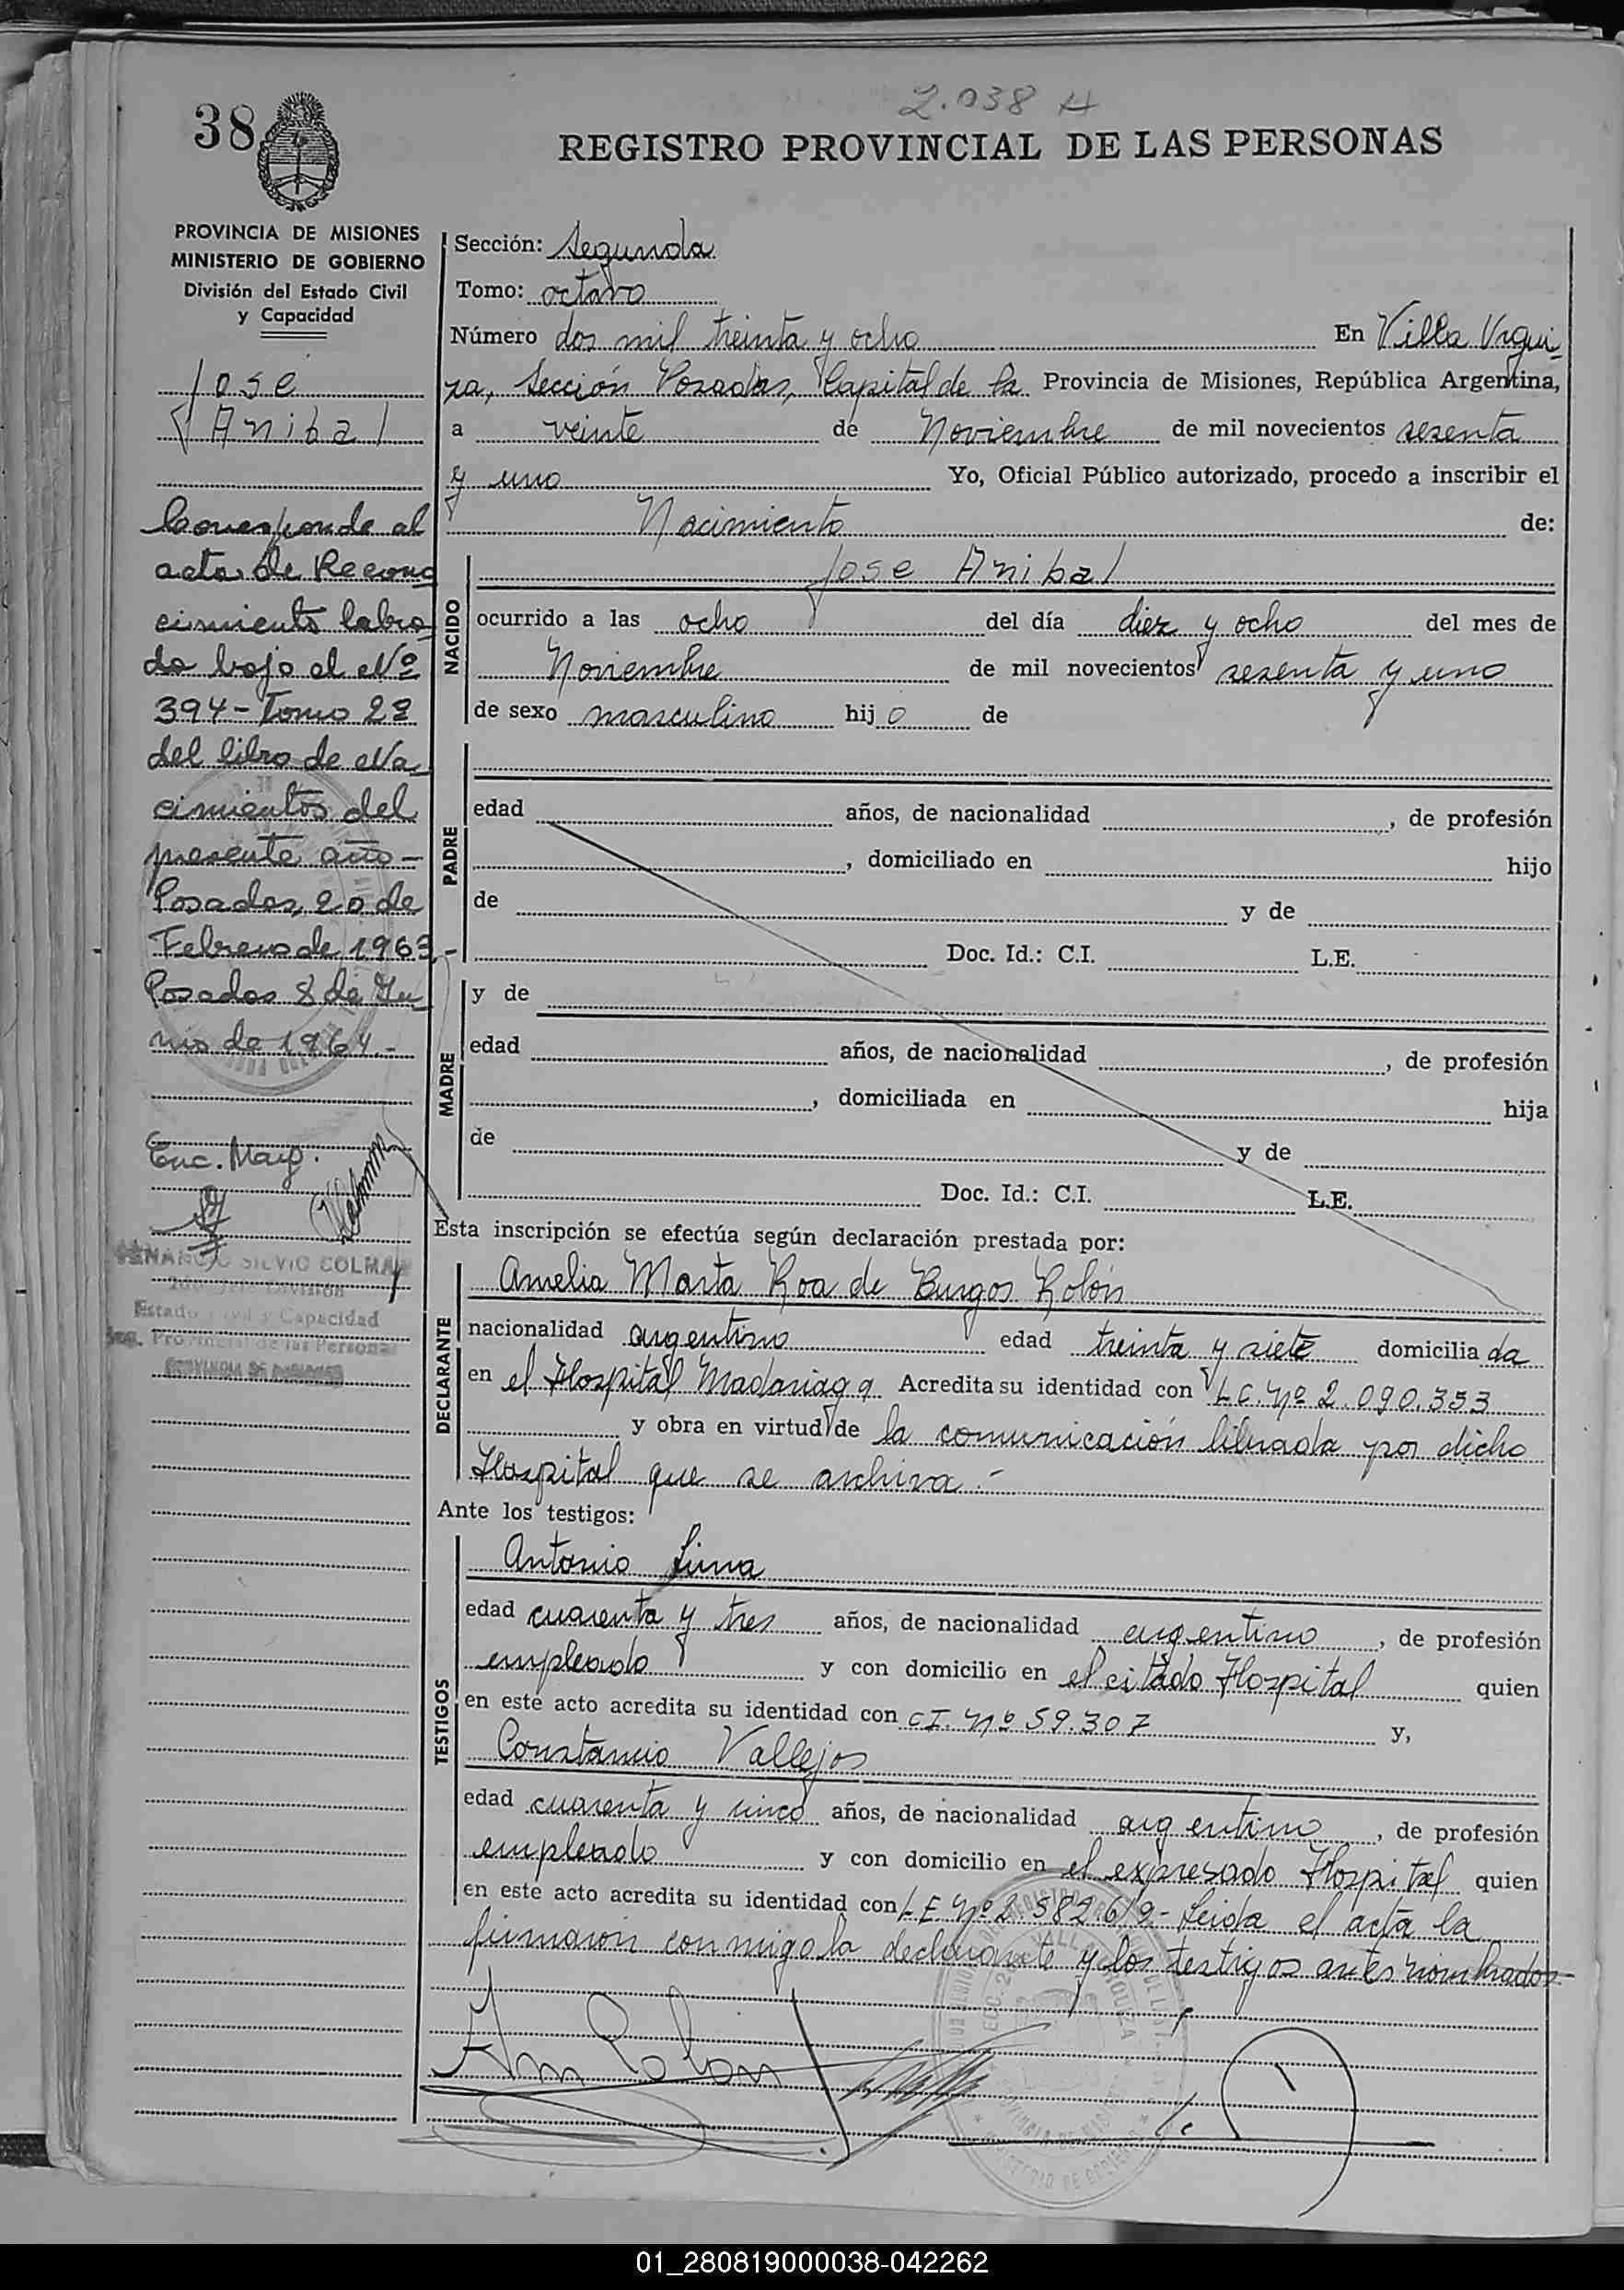 2.038 H
38
REGISTRO PROVINCIAL DE LAS PERSONAS
PROVINCIA DE MISIONES
MINISTERIO DE GOBIERNO
División del Estado Civil
y Capacidad
Jose
Anibal
Corresponde al
acta de Recono
cimiento labra
da bajo el Nº
394 - Tomo 2º
del libro de Na
cimientos del
presente año -
Posadas, 20 de
Febrero de 1963 -
Posadas 8 de Ju
nio de 1964.-
Enc. Mayo.
SILVIO COLMA
División
Estado Civil y Capacidad
Reg. Provincial de las Personas
PROVINCIA DE MISIONES
Sección: Segunda
Tomo: octavo
Número dos mil treinta y ocho En Villa Urqui
za, Sección Posadas, Capital de la Provincia de Misiones, República Argentina,
a veinte de Noviembre de mil novecientos sesenta
y uno Yo, Oficial Público autorizado, procedo a inscribir el
Nacimiento de:
NACIDO
Jose Anibal
ocurrido a las ocho del día diez y ocho del mes de
Noviembre de mil novecientos sesenta y uno
de sexo masculino hijo de
PADRE
edad años, de nacionalidad , de profesión
, domiciliado en hijo
de y de
Doc. Id.: C.I. L.E.
MADRE
y de
edad años, de nacionalidad , de profesión
, domiciliada en hija
de y de
Doc. Id.: C.I. L.E.
Esta inscripción se efectúa según declaración prestada por:
DECLARANTE
Amelia Marta Roa de Burgos Rolón
nacionalidad argentino edad treinta y siete domiciliada
en el Hospital Madariaga Acredita su identidad con L C. Nº 2.090.353
y obra en virtud de la comunicación librada por dicho
Hospital que se archiva.-
Ante los testigos:
TESTIGOS
Antonio Lima
edad cuarenta y tres años, de nacionalidad argentino, de profesión
empleado y con domicilio en el citado Hospital quien
en este acto acredita su identidad con C I. Nº 59.307 y,
Constancio Vallejos
edad cuarenta y cinco años, de nacionalidad argentino, de profesión
empleado y con domicilio en el expresado Hospital quien
en este acto acredita su identidad con L E Nº 2.582.619- Leida el acta la
firmaron conmigo la declarante y los testigos antes nombrados
01_280819000038-042262